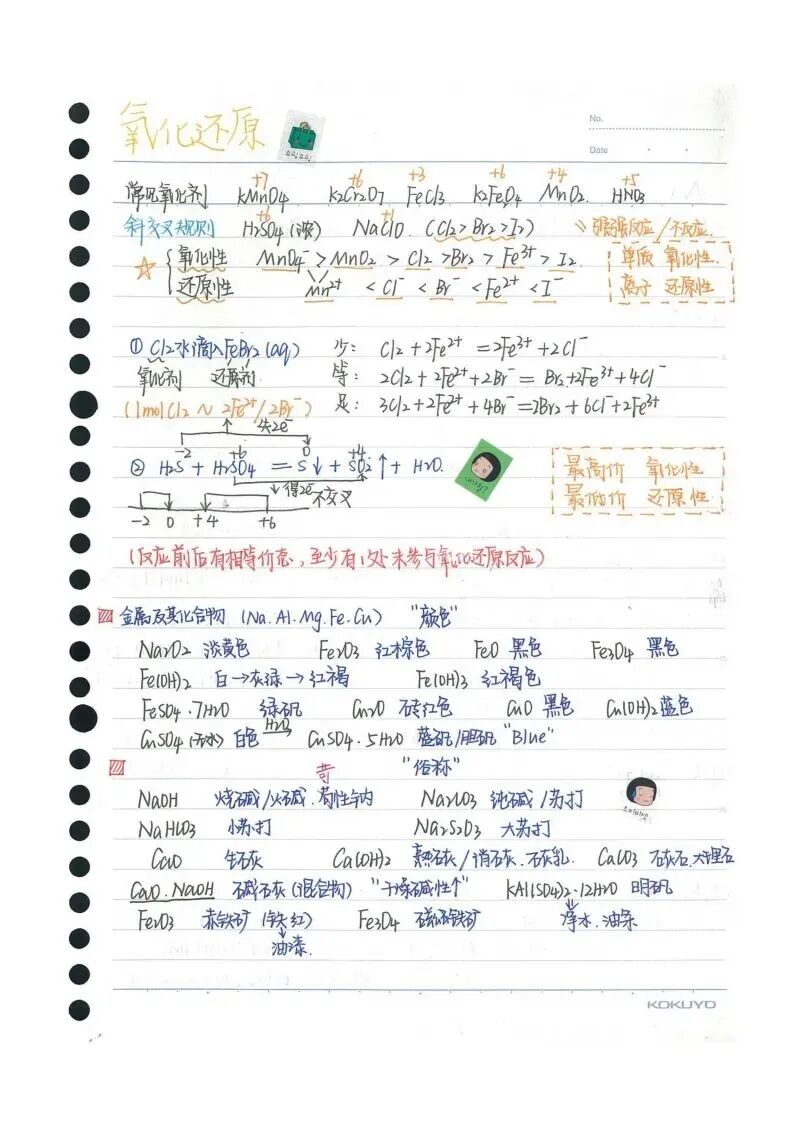 氧化还原
No.
Date
+7 +6 +3 +6 +4 +5
常见氧化剂 KMnO4 K2Cr2O7 FeCl3 K2FeO4 MnO2 HNO3
+6 +1
斜交叉规则 H2SO4(浓) NaClO (Cl2>Br2>I2) 强强反应/不反应
☆ { 氧化性 MnO4⁻ > MnO2 > Cl2 > Br2 > Fe³⁺ > I2
还原性 Mn²⁺ < Cl⁻ < Br⁻ < Fe²⁺ < I⁻
单质 氧化性
离子 还原性
① Cl2水滴入FeBr2(aq) 少: Cl2+2Fe²⁺=2Fe³⁺+2Cl⁻
氧化剂 还原剂 等: 2Cl2+2Fe²⁺+2Br⁻=Br2+2Fe³⁺+4Cl⁻
(1molCl2 ~ 2Fe²⁺/2Br⁻) 足: 3Cl2+2Fe²⁺+4Br⁻=2Br2+6Cl⁻+2Fe³⁺
失2e⁻
-2 +6 0 +4
② H2S + H2SO4 = S↓ + SO2↑ + H2O
得2e⁻ 不交叉
-2 0 +4 +6
最高价 氧化性
最低价 还原性
(反应前后有相等价态,至少有1处未参与氧化还原反应)
金属及其化合物 (Na.Al.Mg.Fe.Cu) "颜色"
Na2O2 淡黄色 Fe2O3 红棕色 FeO 黑色 Fe3O4 黑色
Fe(OH)2 白→灰绿→红褐 Fe(OH)3 红褐色
FeSO4·7H2O 绿矾 Cu2O 砖红色 CuO 黑色 Cu(OH)2 蓝色
H2O
CuSO4(无水) 白色 → CuSO4·5H2O 蓝矾/胆矾 "Blue"
"俗称"
苛
NaOH 烧碱/火碱.苟性钠 Na2CO3 纯碱/苏打
NaHCO3 小苏打 Na2S2O3 大苏打
CaO 生石灰 Ca(OH)2 熟石灰/消石灰.石灰乳 CaCO3 石灰石.大理石
CaO.NaOH 碱石灰(混合物) "干燥碱性↑" KAl(SO4)2·12H2O 明矾
Fe2O3 赤铁矿(铁红) Fe3O4 磁铁矿 净水.油条
油漆.
KOKUYO